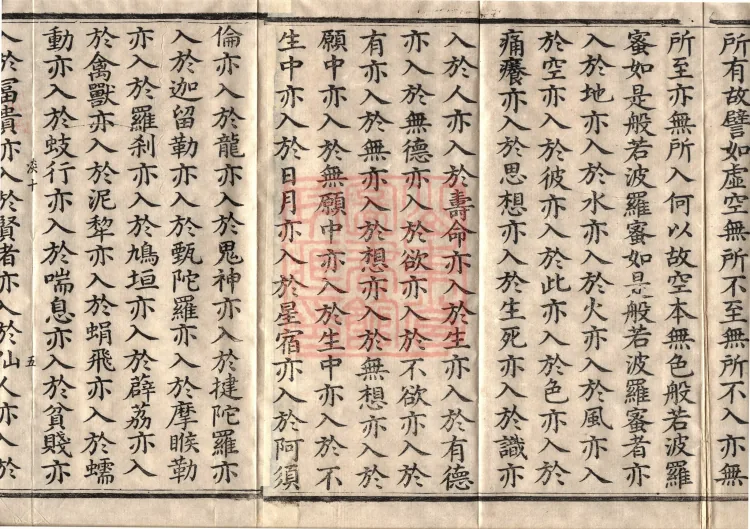 所有故譬如虛空無所不至無所不入亦無
所至亦無所入何以故空本無色般若波羅
蜜如是般若波羅蜜如是般若波羅蜜者亦
入於地亦入於水亦入於火亦入於風亦入
於空亦入於彼亦入於此亦入於色亦入於
痛癢亦入於思想亦入於生死亦入於識亦
入於人亦入於壽命亦入於生亦入於有德
亦入於無德亦入於欲亦入於不欲亦入於
有亦入於無亦入於想亦入於無想亦入於
願中亦入於無願中亦入於生中亦入於不
生中亦入於日月亦入於星宿亦入於阿須
倫亦入於龍亦入於鬼神亦入於揵陀羅亦
入於迦留勒亦入於甄陀羅亦入於摩睺勒
亦入於羅刹亦入於鳩垣亦入於薜荔亦入
於禽獸亦入於泥犂亦入於蜎飛亦入於蠕
動亦入於蚑行亦入於喘息亦入於貧賤亦
淡十 五
入於富貴亦入於賢者亦入於仙人亦入於